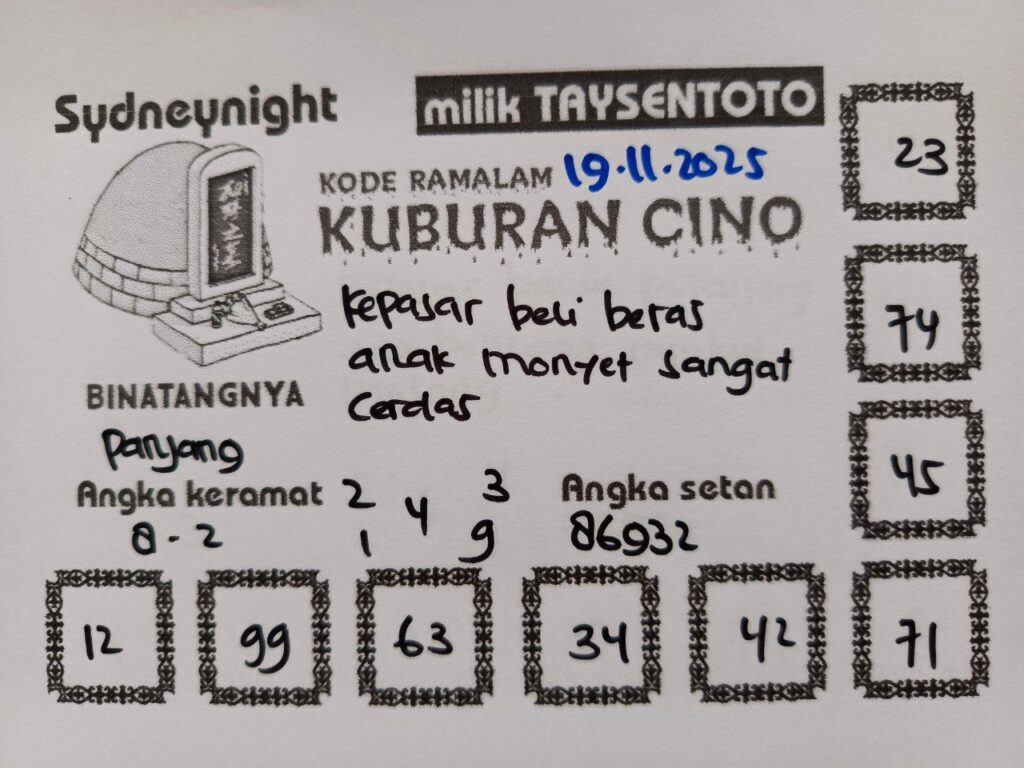 Sydneynight
milik TAYSENTOTO
KODE RAMALAM 19.11.2025
KUBURAN CINO
Kepasar beli beras
anak monyet sangat
Cerdas
BINATANGNYA
Panjang
Angka keramat
8 - 2
2 4 3
1 9
Angka setan
86932
23
74
45
71
12 99 63 34 42